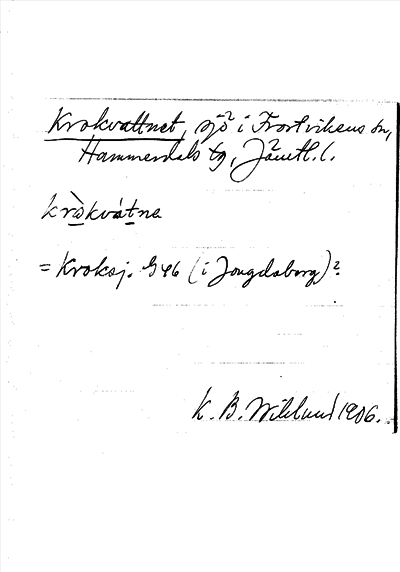 Krokvattnet, sjö i Frostvikens sn,
Hammerdals tg, Jämtl. l.
kròkvátne
= Kroksj. G 46 (i Jougdaberg)?
K. B. Wiklund 1906.